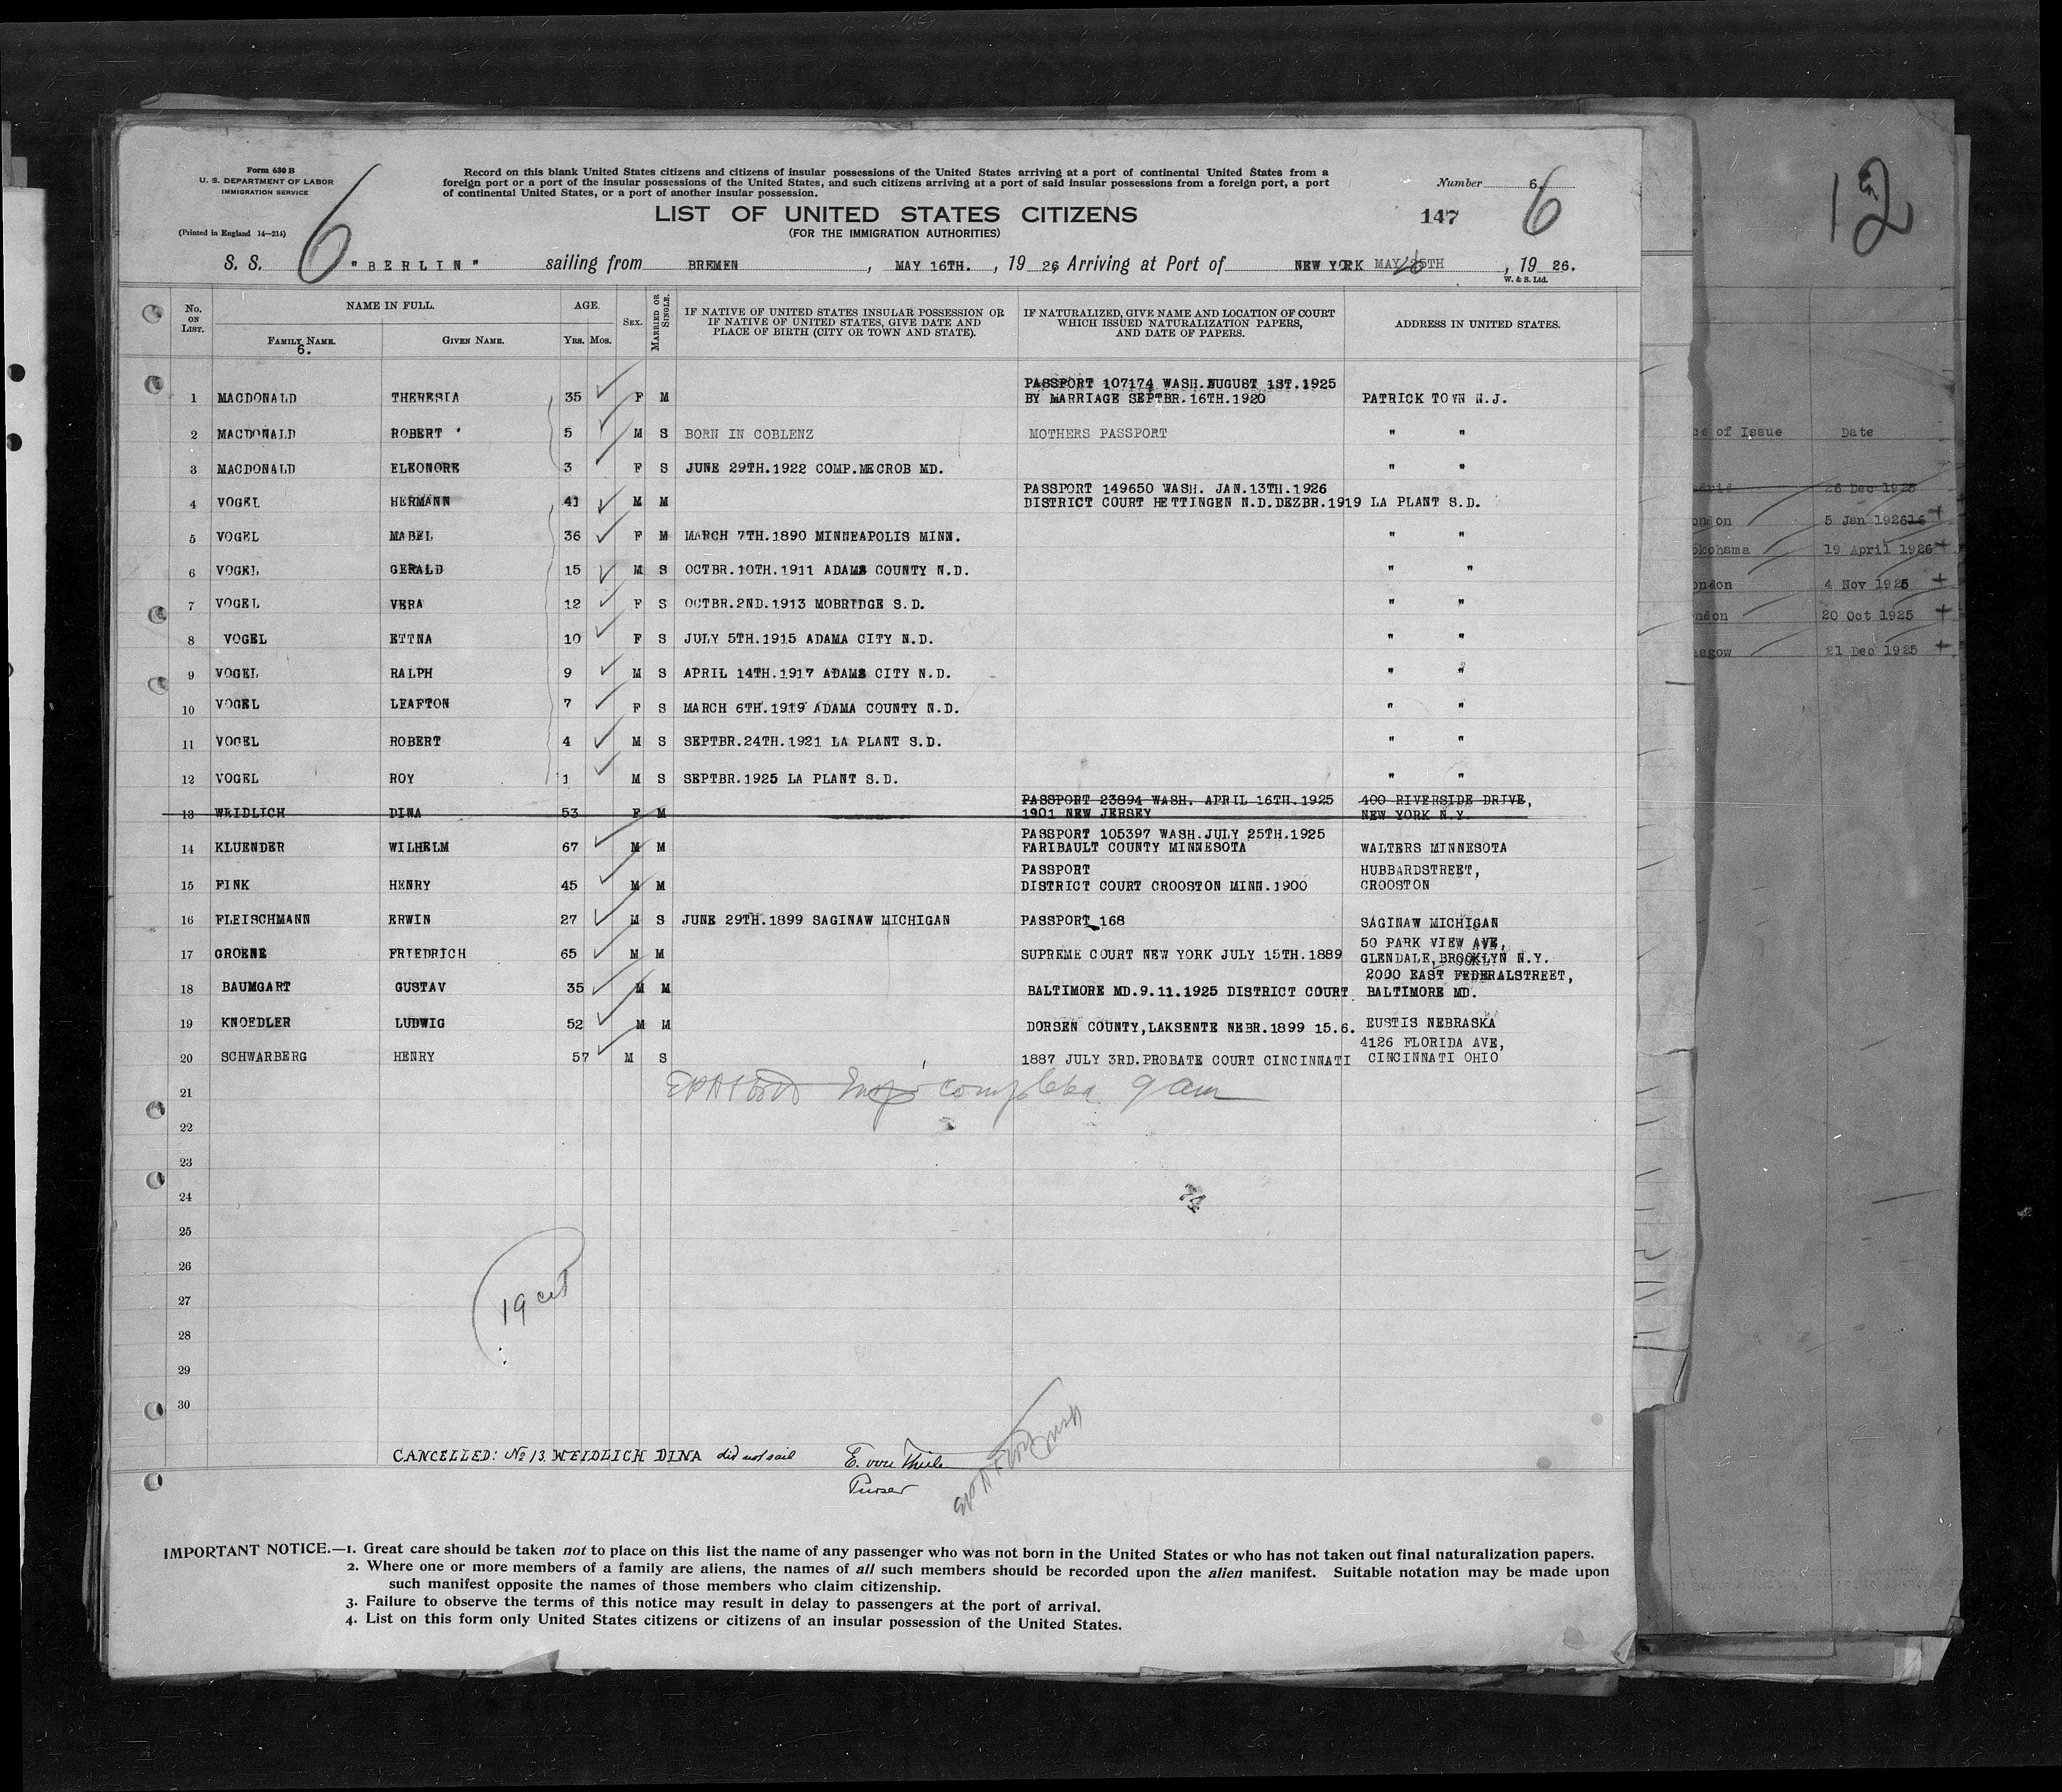 Form 630 B
U. S. DEPARTMENT OF LABOR
IMMIGRATION SERVICE
(Printed in England 14—214)
6
Record on this blank United States citizens and citizens of insular possessions of the United States arriving at a port of continental United States from a
foreign port or a port of the insular possessions of the United States, and such citizens arriving at a port of said insular possessions from a foreign port, a port
of continental United States, or a port of another insular possession.
Number 6.
LIST OF UNITED STATES CITIZENS
(FOR THE IMMIGRATION AUTHORITIES)
147
6
S. S. "BERLIN" sailing from BREMEN, MAY 16TH., 19 26, Arriving at Port of NEW YORK MAY 25TH, 19 26.
W. & S. Ltd.
No. ON LIST.
NAME IN FULL.
FAMILY NAME.
6.
GIVEN NAME.
AGE.
YRS. MOS.
SEX.
MARRIED OR SINGLE.
IF NATIVE OF UNITED STATES INSULAR POSSESSION OR
IF NATIVE OF UNITED STATES, GIVE DATE AND
PLACE OF BIRTH (CITY OR TOWN AND STATE).
IF NATURALIZED, GIVE NAME AND LOCATION OF COURT
WHICH ISSUED NATURALIZATION PAPERS,
AND DATE OF PAPERS.
ADDRESS IN UNITED STATES.
PASSPORT 107174 WASH.AUGUST 1ST.1925
1 MACDONALD THERESIA 35 F M BY MARRIAGE SEPTBR.16TH.1920 PATRICK TOWN N.J.
2 MACDONALD ROBERT 5 M S BORN IN COBLENZ MOTHERS PASSPORT " "
3 MACDONALD ELEONORE 3 F S JUNE 29TH.1922 COMP.MECROB MD. " "
PASSPORT 149650 WASH. JAN.13TH.1926
4 VOGEL HERMANN 41 M M DISTRICT COURT HETTINGEN N.D.DEZBR.1919 LA PLANT S.D.
5 VOGEL MABEL 36 F M MARCH 7TH.1890 MINNEAPOLIS MINN. " "
6 VOGEL GERALD 15 M S OCTBR.10TH.1911 ADAMS COUNTY N.D. " "
7 VOGEL VERA 12 F S OCTBR.2ND.1913 MOBRIDGE S.D. " "
8 VOGEL ETTNA 10 F S JULY 5TH.1915 ADAMA CITY N.D. " "
9 VOGEL RALPH 9 M S APRIL 14TH.1917 ADAMS CITY N.D. " "
10 VOGEL LEAFTON 7 F S MARCH 6TH.1919 ADAMA COUNTY N.D. " "
11 VOGEL ROBERT 4 M S SEPTBR.24TH.1921 LA PLANT S.D. " "
12 VOGEL ROY 1 M S SEPTBR.1925 LA PLANT S.D. " "
PASSPORT 23894 WASH. APRIL 16TH.1925 400 RIVERSIDE DRIVE,
13 WEIDLICH DINA 53 F M 1901 NEW JERSEY NEW YORK N.Y.
PASSPORT 105397 WASH.JULY 25TH.1925
14 KLUENDER WILHELM 67 M M FARIBAULT COUNTY MINNESOTA WALTERS MINNESOTA
PASSPORT HUBBARDSTREET,
15 FINK HENRY 45 M M DISTRICT COURT CROOSTON MINN.1900 CROOSTON
16 FLEISCHMANN ERWIN 27 M S JUNE 29TH.1899 SAGINAW MICHIGAN PASSPORT 168 SAGINAW MICHIGAN
50 PARK VIEW AVE,
17 GROENE FRIEDRICH 65 M M SUPREME COURT NEW YORK JULY 15TH.1889 GLENDALE,BROOKLYN N.Y.
2000 EAST FEDERALSTREET,
18 BAUMGART GUSTAV 35 M M BALTIMORE MD.9.11.1925 DISTRICT COURT BALTIMORE MD.
19 KNOEDLER LUDWIG 52 M M DORSEN COUNTY,LAKSENTE NEBR.1899 15.6. EUSTIS NEBRASKA
4126 FLORIDA AVE,
20 SCHWARBERG HENRY 57 M S 1887 JULY 3RD.PROBATE COURT CINCINNATI CINCINNATI OHIO
21
22
23
24
25
26
27
28
29
30
19 cit
CANCELLED: No 13 WEIDLICH DINA did not sail E. von Thiele
Purser
IMPORTANT NOTICE.—1. Great care should be taken not to place on this list the name of any passenger who was not born in the United States or who has not taken out final naturalization papers.
2. Where one or more members of a family are aliens, the names of all such members should be recorded upon the alien manifest. Suitable notation may be made upon
such manifest opposite the names of those members who claim citizenship.
3. Failure to observe the terms of this notice may result in delay to passengers at the port of arrival.
4. List on this form only United States citizens or citizens of an insular possession of the United States.
12
of Issue Date
26 Dec 1925
5 Jan 1926
19 April 1926
4 Nov 1925
20 Oct 1925
21 Dec 1925